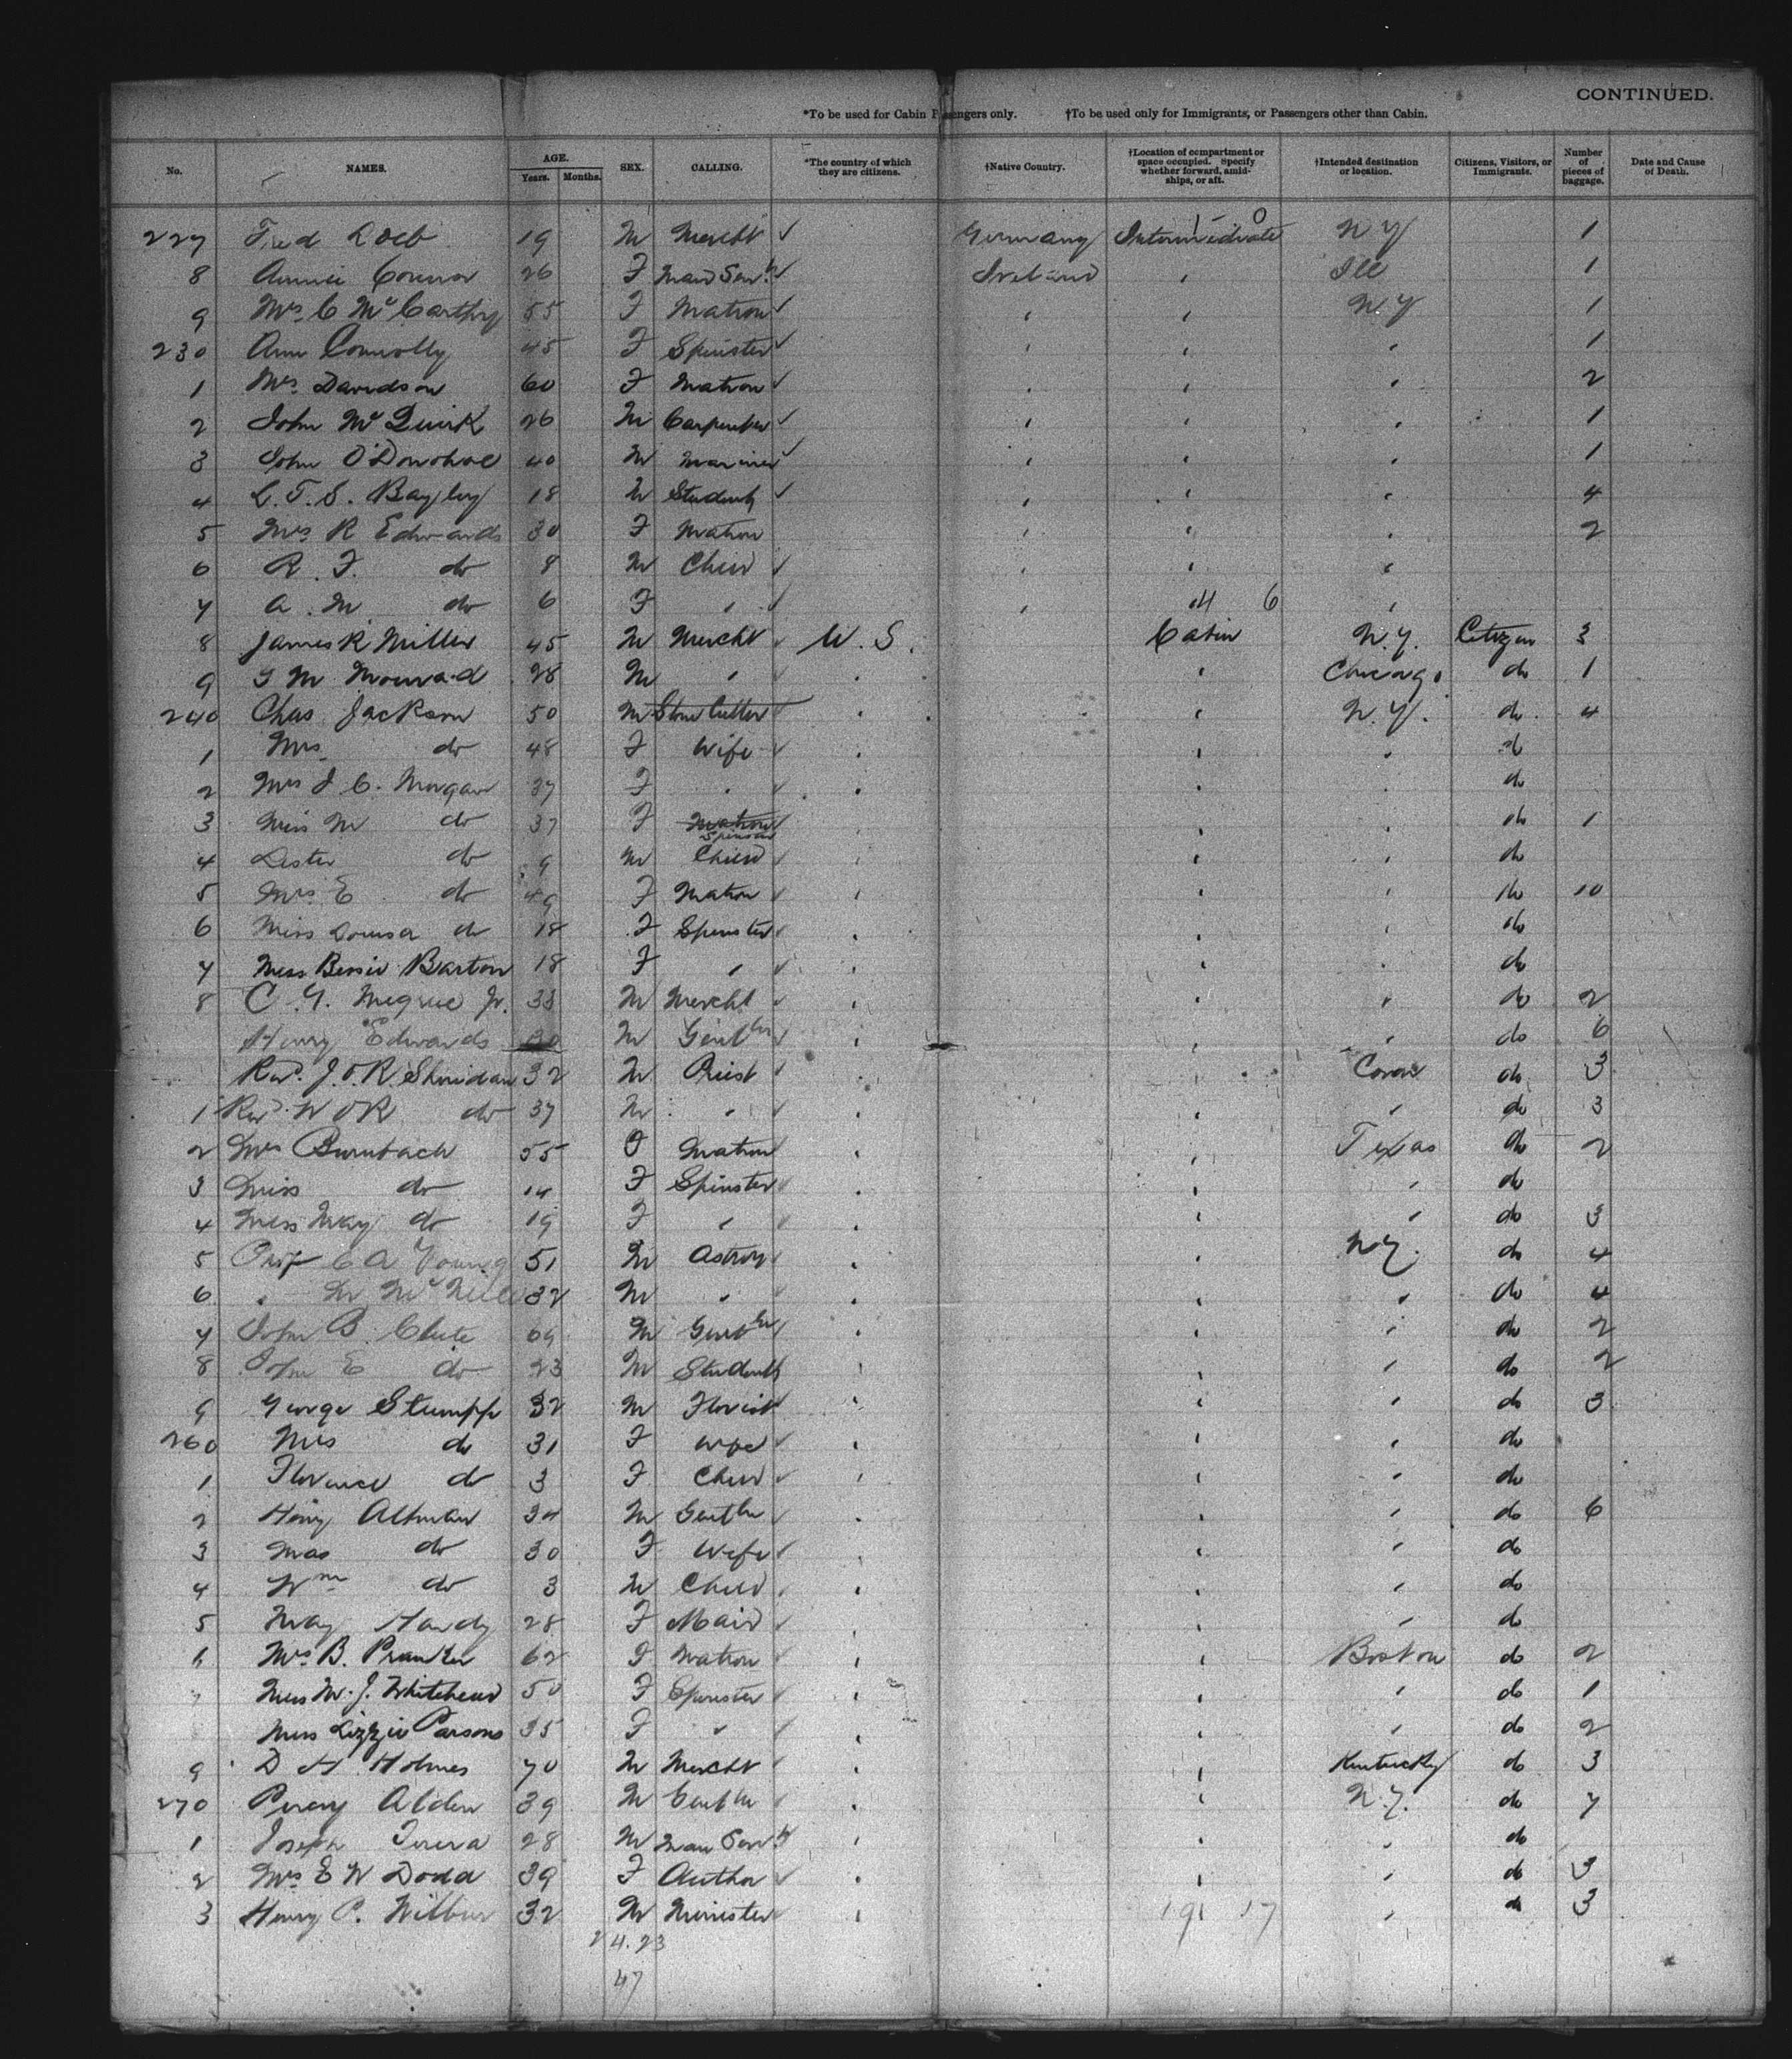 CONTINUED.
*To be used for Cabin Passengers only. †To be used only for Immigrants, or Passengers other than Cabin.
No. NAMES. AGE. Years. Months. SEX. CALLING. *The country of which they are citizens. †Native Country. †Location of compartment or space occupied. Specify whether forward, amidships, or aft. †Intended destination or location. Citizens, Visitors, or Immigrants. Number of pieces of baggage. Date and Cause of Death.
227 Fred Loeb 19 M Mercht ✓ Germany Intermediate N Y 1
8 Annie Connor 26 F Maid Servt ✓ Ireland " Ill 1
9 Mrs C McCarthy 55 F Matron ✓ " " N.Y 1
230 Ann Connolly 45 F Spinster ✓ " " " 1
1 Mrs Davidson 60 F Matron ✓ " " " 2
2 John McQuirk 26 M Carpenter ✓ " " " 1
3 John O'Donohoe 40 M Mariner ✓ " " " 1
4 L. T. S. Bayley 18 M Student ✓ " " " 4
5 Mrs R Edwards 30 F Matron " " " 2
6 R. F. do 8 M Child ✓ " " "
7 A. M do 6 F " ✓ " 4 6 "
8 James R Miller 45 M Mercht ✓ U. S. Cabin N.Y. Citizen 3
9 28 M " ✓ " " Chicago do 1
240 Chas Jackson 50 M Stone Cutter " " N.Y. do 4
1 Mrs do 48 F Wife ✓ " " " do
2 Mrs J C. Morgan 37 F " ✓ " " " do
3 Miss M do 37 F Matron Spinster ✓ " " " do 1
4 Lester do 9 M Child ✓ " " " do
5 Mrs E do 49 F Matron ✓ " " " do 10
6 Miss Louisa do 18 F Spinster ✓ " " " do
7 Miss Bessie Barton 18 F " ✓ " " " do
8 C. Y. Megrue Jr. 33 M Mercht ✓ " " " do 2
Henry Edwards M Gentln ✓ " " " do 6
Revd. J. O'R. Sheridan 32 M Priest ✓ " " do 3
1 Revd. W O'R do 37 M " ✓ " " " do 3
2 Mrs Burnbach 55 F Matron ✓ " " Texas do 2
3 Miss do 14 F Spinster ✓ " " " do
4 Miss May do 19 F " ✓ " " " do 3
5 Prof C A Young 51 M Astron ✓ " " N Y. do 4
6 " McNeill 32 M " ✓ " " " do 4
7 John B. Clute 69 M Gentln ✓ " " " do 2
8 John E do 23 M Student " " " do 2
9 George Stumpp 32 M Florist ✓ " " " do 3
260 Mrs do 31 F Wife ✓ " " " do
1 Florence do 3 F Child ✓ " " " do
2 Henry Altman 34 M Gentln ✓ " " " do 6
3 Mrs do 30 F Wife ✓ " " " do
4 Wm do 3 M Child ✓ " " " do
5 May Handy 28 F Maid ✓ " " " do
6 Mrs B. 62 F Matron ✓ " " Boston do 2
7 Miss M. J. Whitehead 50 F Spinster ✓ " " " do 1
Miss Lizzie Parsons 35 F " ✓ " " " do 2
9 D H Holmes 70 M Mercht ✓ " " Kentucky do 3
270 Percy Alden 39 M Gentln ✓ " " N.Y. do 7
1 Joseph 28 M Man Servt ✓ " " " do
2 Mrs E W Dodd 39 F Author ✓ " " " do 3
3 Henry C. Wilbur 32 M Minister ✓ " 19 17 " do 3
24.23
47